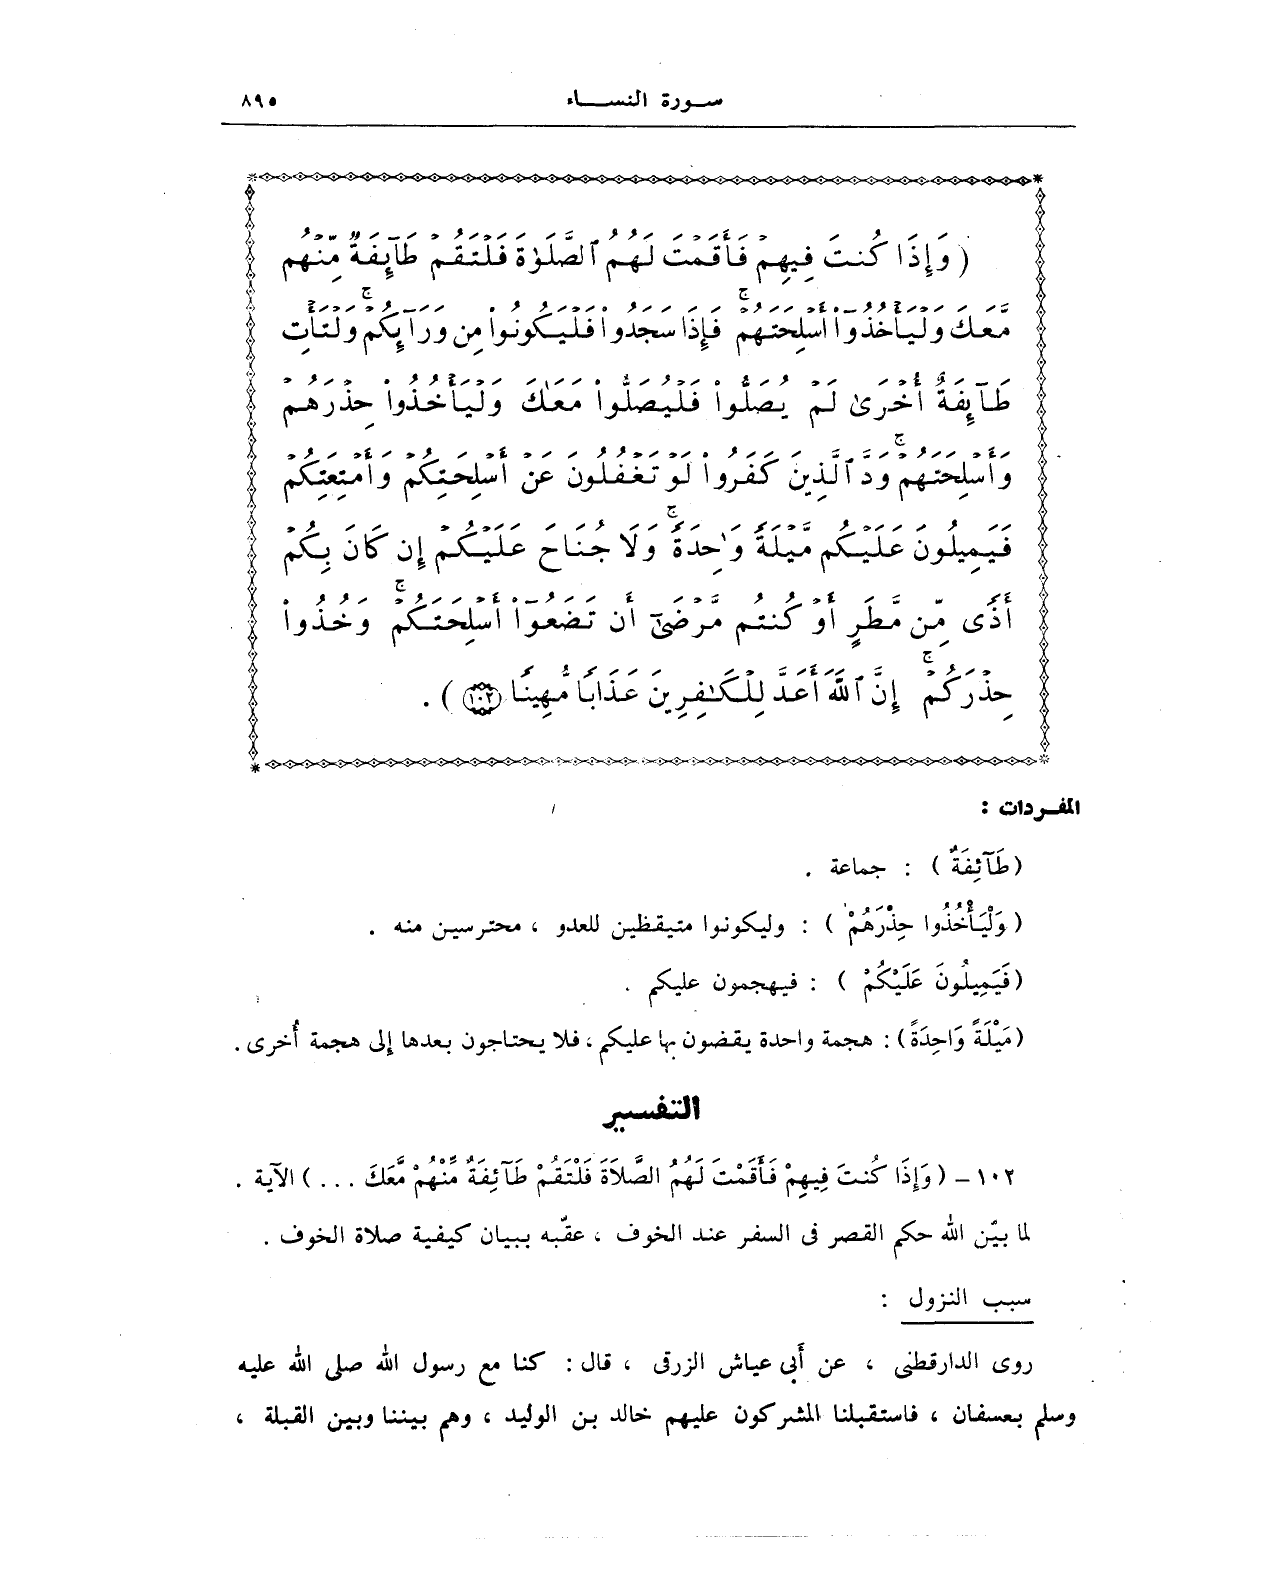 سورة النساء ٨٩٥
( وَإِذَا كُنتَ فِيهِمْ فَأَقَمْتَ لَهُمُ ٱلصَّلَوٰةَ فَلْتَقُمْ طَآئِفَةٌ مِّنْهُم
مَّعَكَ وَلْيَأْخُذُوٓا۟ أَسْلِحَتَهُمْ ۚ فَإِذَا سَجَدُوا۟ فَلْيَكُونُوا۟ مِن وَرَآئِكُمْ ۚ وَلْتَأْتِ
طَآئِفَةٌ أُخْرَىٰ لَمْ يُصَلُّوا۟ فَلْيُصَلُّوا۟ مَعَكَ وَلْيَأْخُذُوا۟ حِذْرَهُمْ
وَأَسْلِحَتَهُمْ ۚ وَدَّ ٱلَّذِينَ كَفَرُوا۟ لَوْ تَغْفُلُونَ عَنْ أَسْلِحَتِكُمْ وَأَمْتِعَتِكُمْ
فَيَمِيلُونَ عَلَيْكُم مَّيْلَةً وَٰحِدَةً ۚ وَلَا جُنَاحَ عَلَيْكُمْ إِن كَانَ بِكُمْ
أَذًى مِّن مَّطَرٍ أَوْ كُنتُم مَّرْضَىٰٓ أَن تَضَعُوٓا۟ أَسْلِحَتَكُمْ ۚ وَخُذُوا۟
حِذْرَكُمْ ۚ إِنَّ ٱللَّهَ أَعَدَّ لِلْكَـٰفِرِينَ عَذَابًا مُّهِينًا ١٠٢ ) .
المفردات :
( طَآئِفَةٌ ) : جماعة .
( وَلْيَأْخُذُوا حِذْرَهُمْ ) : وليكونوا متيقظين للعدو ، محترسين منه .
( فَيَمِيلُونَ عَلَيْكُمْ ) : فيهجمون عليكم .
( مَيْلَةً وَاحِدَةً ) : هجمة واحدة يقضون بها عليكم ، فلا يحتاجون بعدها إلى هجمة أُخرى .
التفسير
١٠٢ - ( وَإِذَا كُنتَ فِيهِمْ فَأَقَمْتَ لَهُمُ الصَّلَاةَ فَلْتَقُمْ طَآئِفَةٌ مِّنْهُمْ مَّعَكَ ... ) الآية .
لما بيّن الله حكم القصر فى السفر عند الخوف ، عقّبه ببيان كيفية صلاة الخوف .
سبب النزول :
روى الدارقطنى ، عن أَبى عياش الزرقى ، قال : كنا مع رسول الله صلى الله عليه
وسلم بعسفان ، فاستقبلنا المشركون عليهم خالد بن الوليد ، وهم بيننا وبين القبلة ،